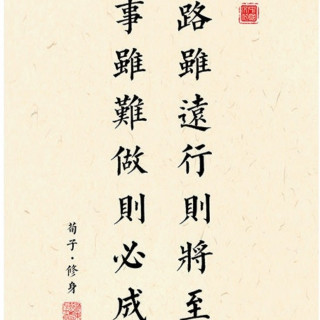 路雖遠行則將至
事雖難做則必成
荀子·修身